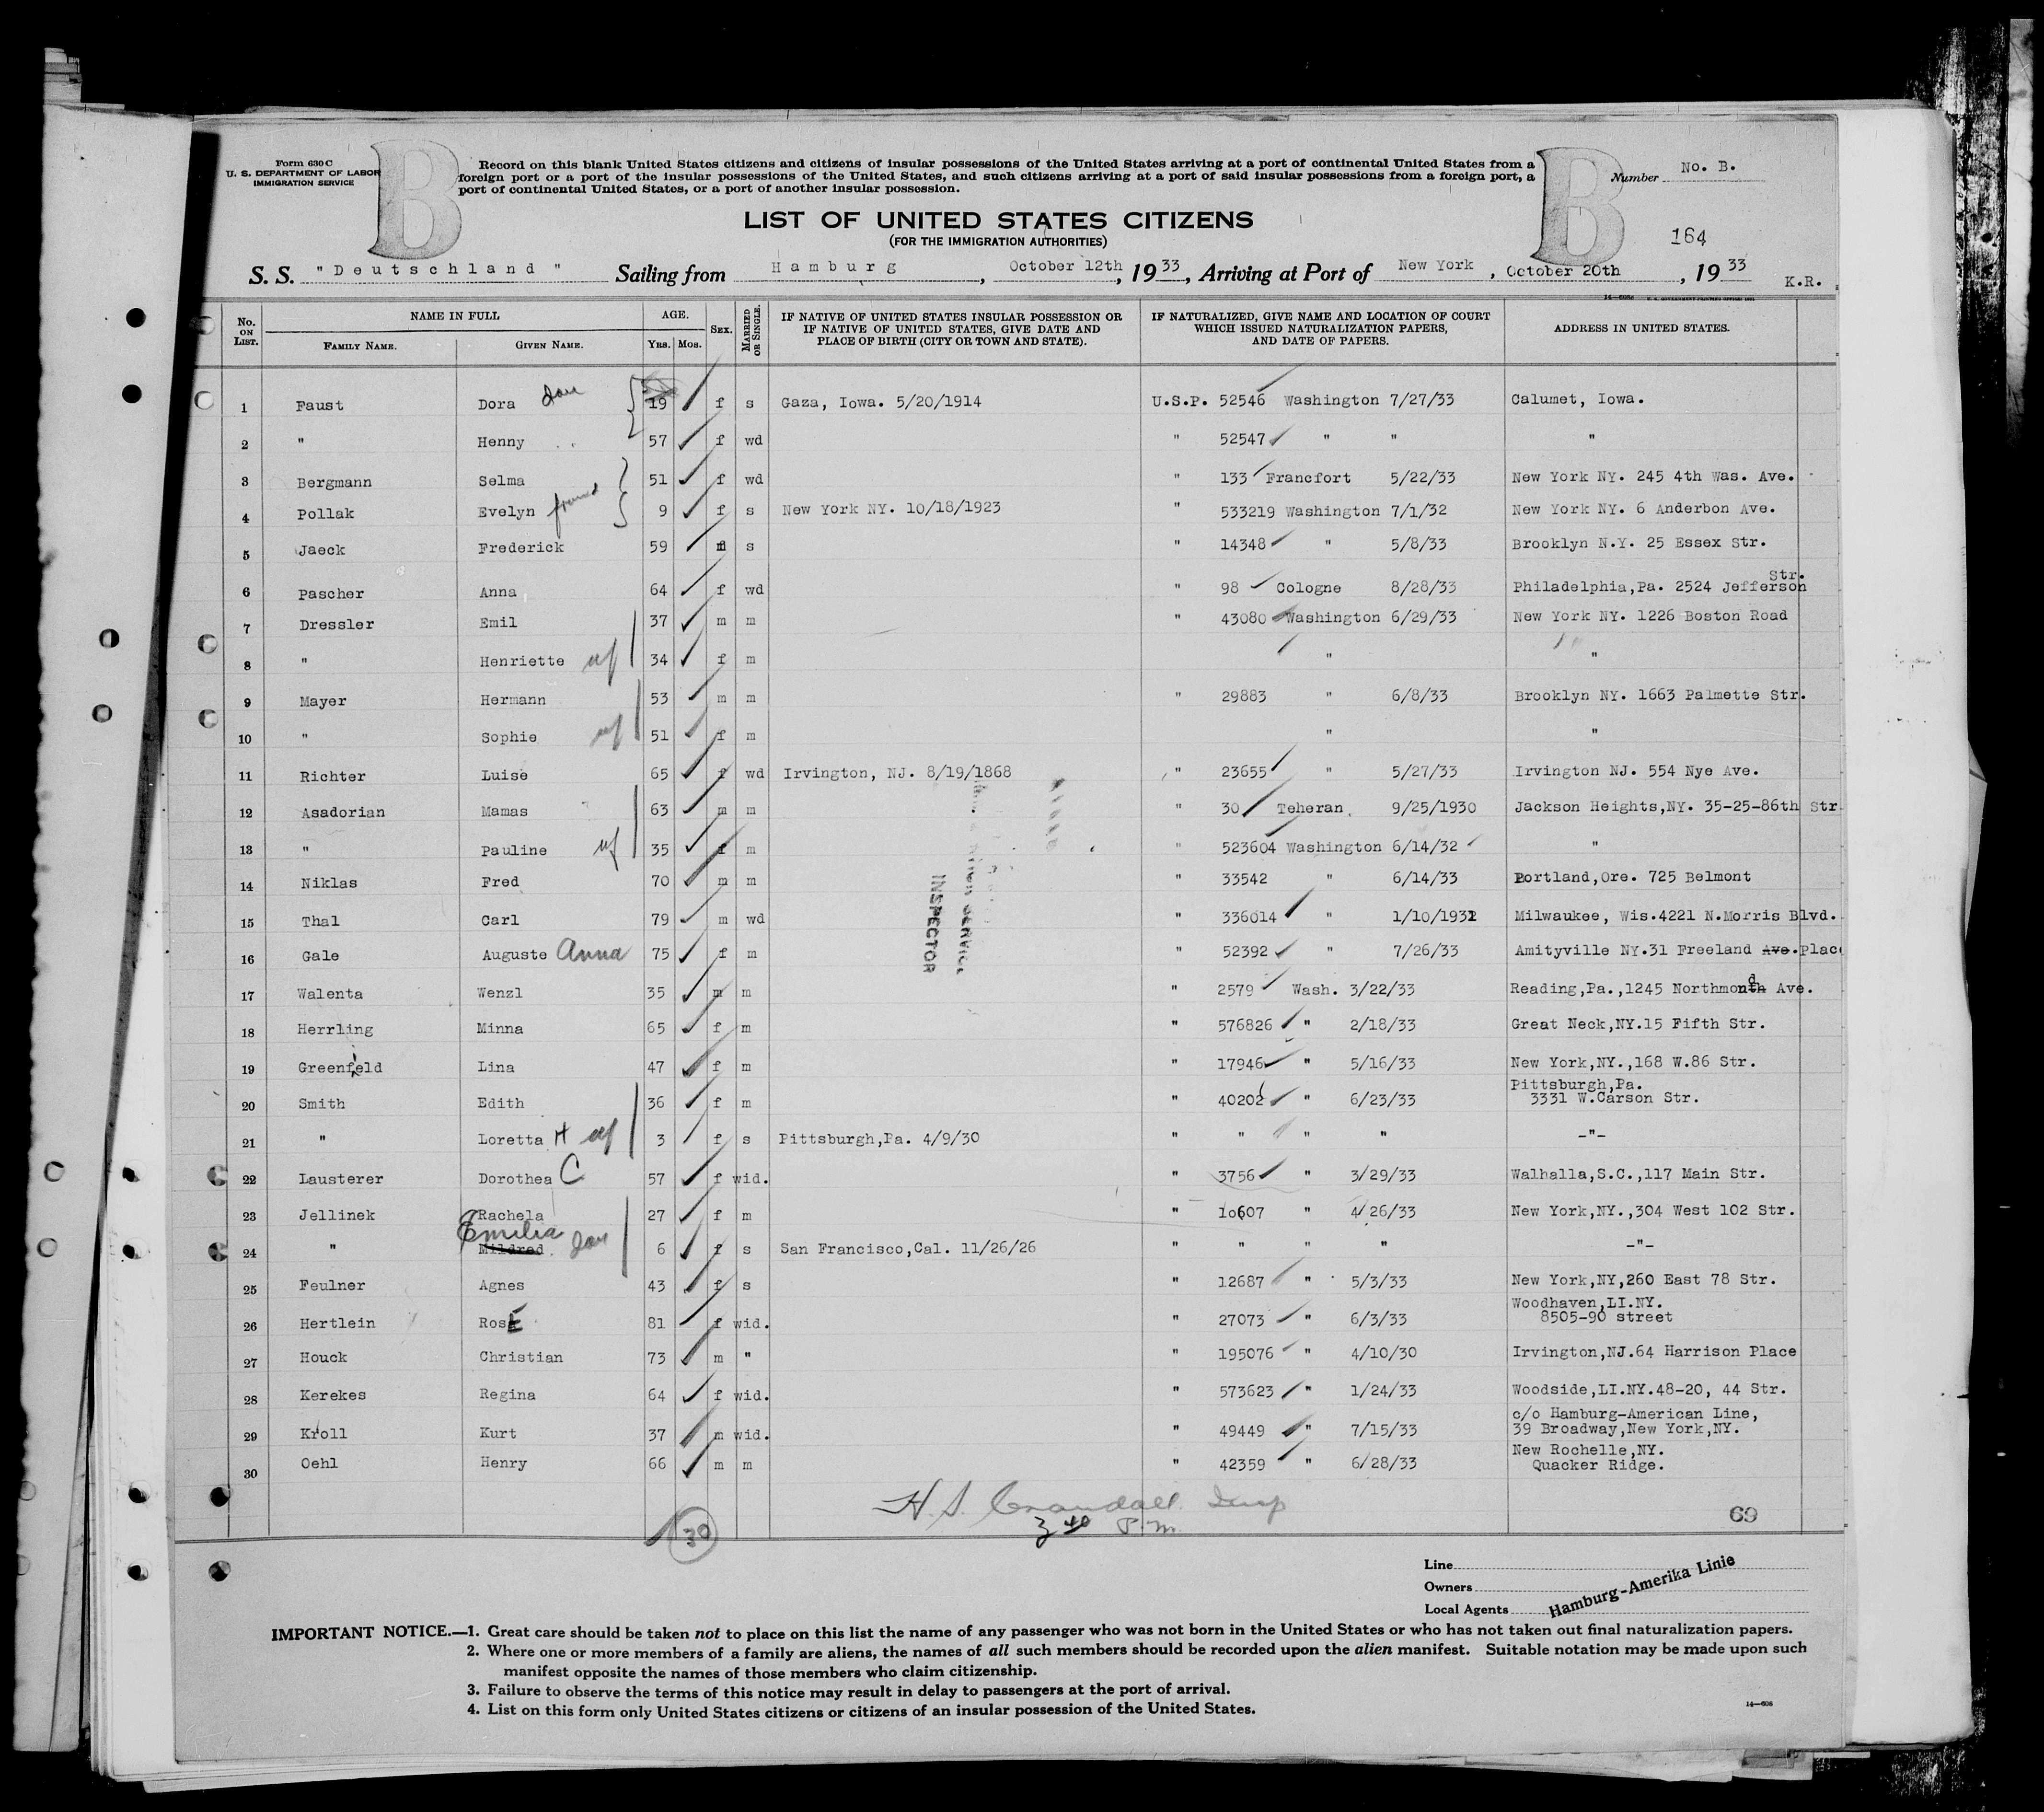 Form 630 C
U. S. DEPARTMENT OF LABOR
IMMIGRATION SERVICE
B
Record on this blank United States citizens and citizens of insular possessions of the United States arriving at a port of continental United States from a
foreign port or a port of the insular possessions of the United States, and such citizens arriving at a port of said insular possessions from a foreign port, a
port of continental United States, or a port of another insular possession.
B
Number No. B.
LIST OF UNITED STATES CITIZENS
(FOR THE IMMIGRATION AUTHORITIES)
164
S. S. "Deutschland" Sailing from Hamburg, October 12th, 1933, Arriving at Port of New York, October 20th, 1933 K.R.
No. ON LIST. NAME IN FULL FAMILY NAME. GIVEN NAME. AGE. YRS. MOS. SEX. MARRIED OR SINGLE. IF NATIVE OF UNITED STATES INSULAR POSSESSION OR IF NATIVE OF UNITED STATES, GIVE DATE AND PLACE OF BIRTH (CITY OR TOWN AND STATE). IF NATURALIZED, GIVE NAME AND LOCATION OF COURT WHICH ISSUED NATURALIZATION PAPERS, AND DATE OF PAPERS. ADDRESS IN UNITED STATES.
1 Faust Dora dau 19 f s Gaza, Iowa. 5/20/1914 U.S.P. 52546 Washington 7/27/33 Calumet, Iowa.
2 " Henny 57 f wd " 52547 " " "
3 Bergmann Selma 51 f wd " 133 Francfort 5/22/33 New York NY. 245 4th Was. Ave.
4 Pollak Evelyn friend 9 f s New York NY. 10/18/1923 " 533219 Washington 7/1/32 New York NY. 6 Anderbon Ave.
5 Jaeck Frederick 59 m s " 14348 " 5/8/33 Brooklyn N.Y. 25 Essex Str.
6 Pascher Anna 64 f wd " 98 Cologne 8/28/33 Philadelphia,Pa. 2524 Jefferson Str.
7 Dressler Emil 37 m m " 43080 Washington 6/29/33 New York NY. 1226 Boston Road
8 " Henriette wf 34 f m " "
9 Mayer Hermann 53 m m " 29883 " 6/8/33 Brooklyn NY. 1663 Palmette Str.
10 " Sophie wf 51 f m " "
11 Richter Luise 65 f wd Irvington, NJ. 8/19/1868 " 23655 " 5/27/33 Irvington NJ. 554 Nye Ave.
12 Asadorian Mamas 63 m m " 30 Teheran 9/25/1930 Jackson Heights,NY. 35-25-86th Str
13 " Pauline wf 35 f m " 523604 Washington 6/14/32 "
14 Niklas Fred 70 m m " 33542 " 6/14/33 Portland,Ore. 725 Belmont
15 Thal Carl 79 m wd " 336014 " 1/10/1931 Milwaukee, Wis.4221 N.Morris Blvd.
16 Gale Auguste Anna 75 f m " 52392 " 7/26/33 Amityville NY.31 Freeland Ave.Place
INSPECTOR
17 Walenta Wenzl 35 m m " 2579 Wash. 3/22/33 Reading,Pa.,1245 Northmond Ave.
18 Herrling Minna 65 f m " 576826 " 2/18/33 Great Neck,NY.15 Fifth Str.
19 Greenfield Lina 47 f m " 17946 " 5/16/33 New York,NY.,168 W.86 Str.
20 Smith Edith 36 f m " 40202 " 6/23/33 Pittsburgh,Pa.
3331 W.Carson Str.
21 " Loretta H wf 3 f s Pittsburgh,Pa. 4/9/30 " " " " -"-
22 Lausterer Dorothea C 57 f wid. " 3756 " 3/29/33 Walhalla,S.C.,117 Main Str.
23 Jellinek Rachela 27 f m " 10607 " 4/26/33 New York,NY.,304 West 102 Str.
24 " Emilia Mildred dau 6 f s San Francisco,Cal. 11/26/26 " " " " -"-
25 Feulner Agnes 43 f s " 12687 " 5/3/33 New York,NY,260 East 78 Str.
26 Hertlein RosE 81 f wid. " 27073 " 6/3/33 Woodhaven,LI.NY.
8505-90 street
27 Houck Christian 73 m " " 195076 " 4/10/30 Irvington,NJ.64 Harrison Place
28 Kerekes Regina 64 f wid. " 573623 " 1/24/33 Woodside,LI.NY.48-20, 44 Str.
29 Kroll Kurt 37 m wid. " 49449 " 7/15/33 c/o Hamburg-American Line,
39 Broadway,New York,NY.
30 Oehl Henry 66 m m " 42359 " 6/28/33 New Rochelle,NY.
Quacker Ridge.
H. S. Crandall Insp
3 40 P.m.
30
69
Line
Owners
Local Agents
Hamburg-Amerika Linie
IMPORTANT NOTICE.—1. Great care should be taken not to place on this list the name of any passenger who was not born in the United States or who has not taken out final naturalization papers.
2. Where one or more members of a family are aliens, the names of all such members should be recorded upon the alien manifest. Suitable notation may be made upon such
manifest opposite the names of those members who claim citizenship.
3. Failure to observe the terms of this notice may result in delay to passengers at the port of arrival.
4. List on this form only United States citizens or citizens of an insular possession of the United States.
14—608